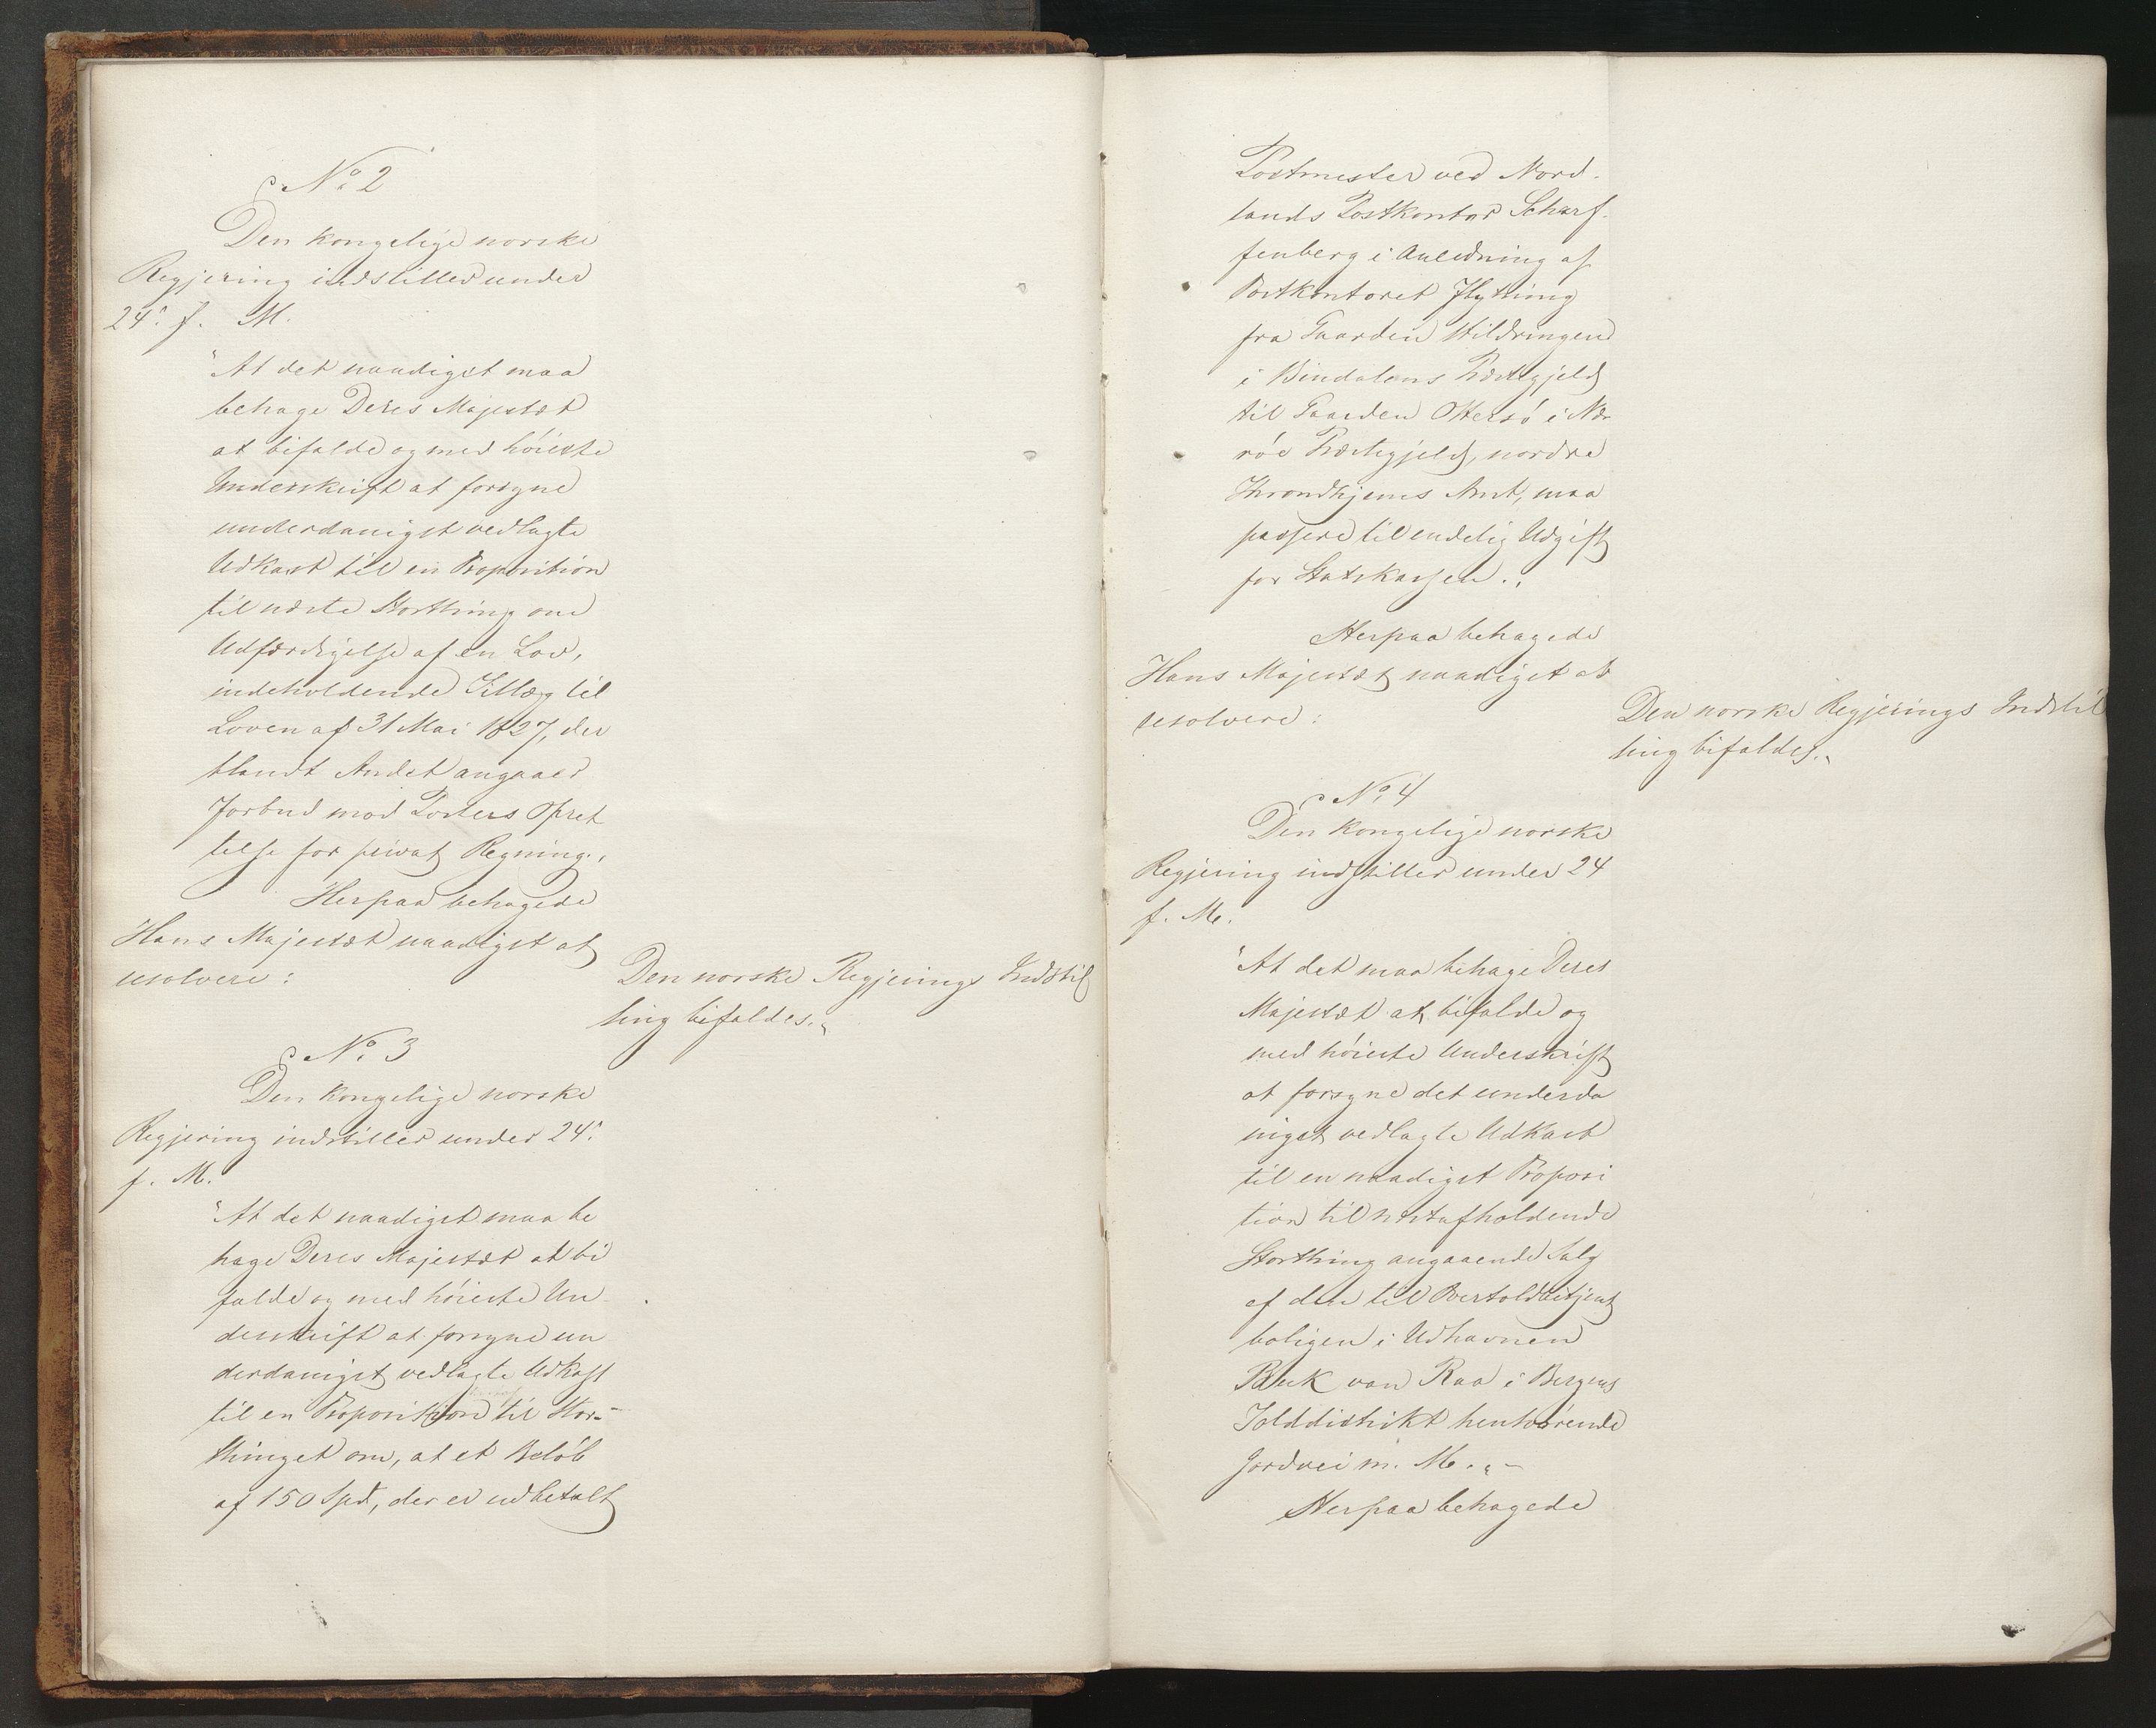 No. 2
Den kongelige norske
Regjering indstiller under
24. f. M.
"At det naadigst maa
behage Deres Majestæt
at bifalde og med høieste
Underskrift at forsyne
underdanigst vedlagte
Udkast til en Proposition
til næste Storthing om
Udfærdigelse af en Lov,
indeholdende Tillæg til
Loven af 31 Mai 1827, der
blandt Andet angaaer
Forbud mod Posters Opret
telse for privat Regning.,
Herpaa behagede
Hans Majestæt naadigst at
resolvere:
Den norske Regjerings Indstil
ling bifaldes.„
No. 3
Den kongelige norske
Regjering indstiller under 24.
f. M.
"At det naadigst maa be
hage Deres Majestæt at bi
falde og med høieste Un
derskrift at forsyne un
derdanigst vedlagte Udkast
til en Proposition til Stor-
thinget om, at et Beløb
af 150 Spd, der er udbetalt
Postmester ved Nord-
lands Postkontor Scharf-
fenberg i Anledning af
Postkontoret Flytning
fra Gaarden Vildringen
i Bindalens Præstegjeld
til Gaarden Ottersø i Næ
røe Præstegjeld, nordre
Throndhjems Amt, maa
passere til endelig Udgift
for Statskassen.„
Herpaa behagede
Hans Majestæt naadigst at
resolvere:
Den norske Regjerings Indstil
ling bifaldes.„
No. 4
Den kongelige norske
Regjering indstiller under 24
f. M.
"At det maa behage Deres
Majestæt at bifalde og
med høieste Underskrift
at forsyne det underda
nigst vedlagte Udkast
til en naadigst Proposi
tion til næstafholdende
Storthing angaaende Salg
af den til Overtoldbetjent
boligen i Udhavnen
Buk van Raa i Bergens
Tolddistrikt henhørende
Jordvei m. M.„-
Herpaa behagede